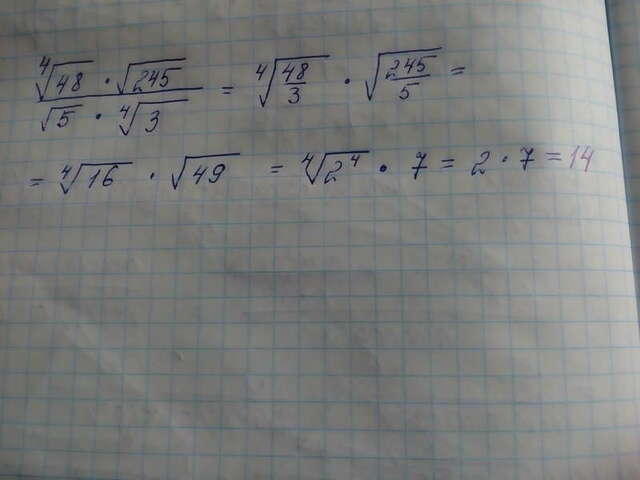 ⁴√48 · √245 / √5 · ⁴√3 = ⁴√48/3 · √245/5 =
= ⁴√16 · √49 = ⁴√2⁴ · 7 = 2 · 7 = 14